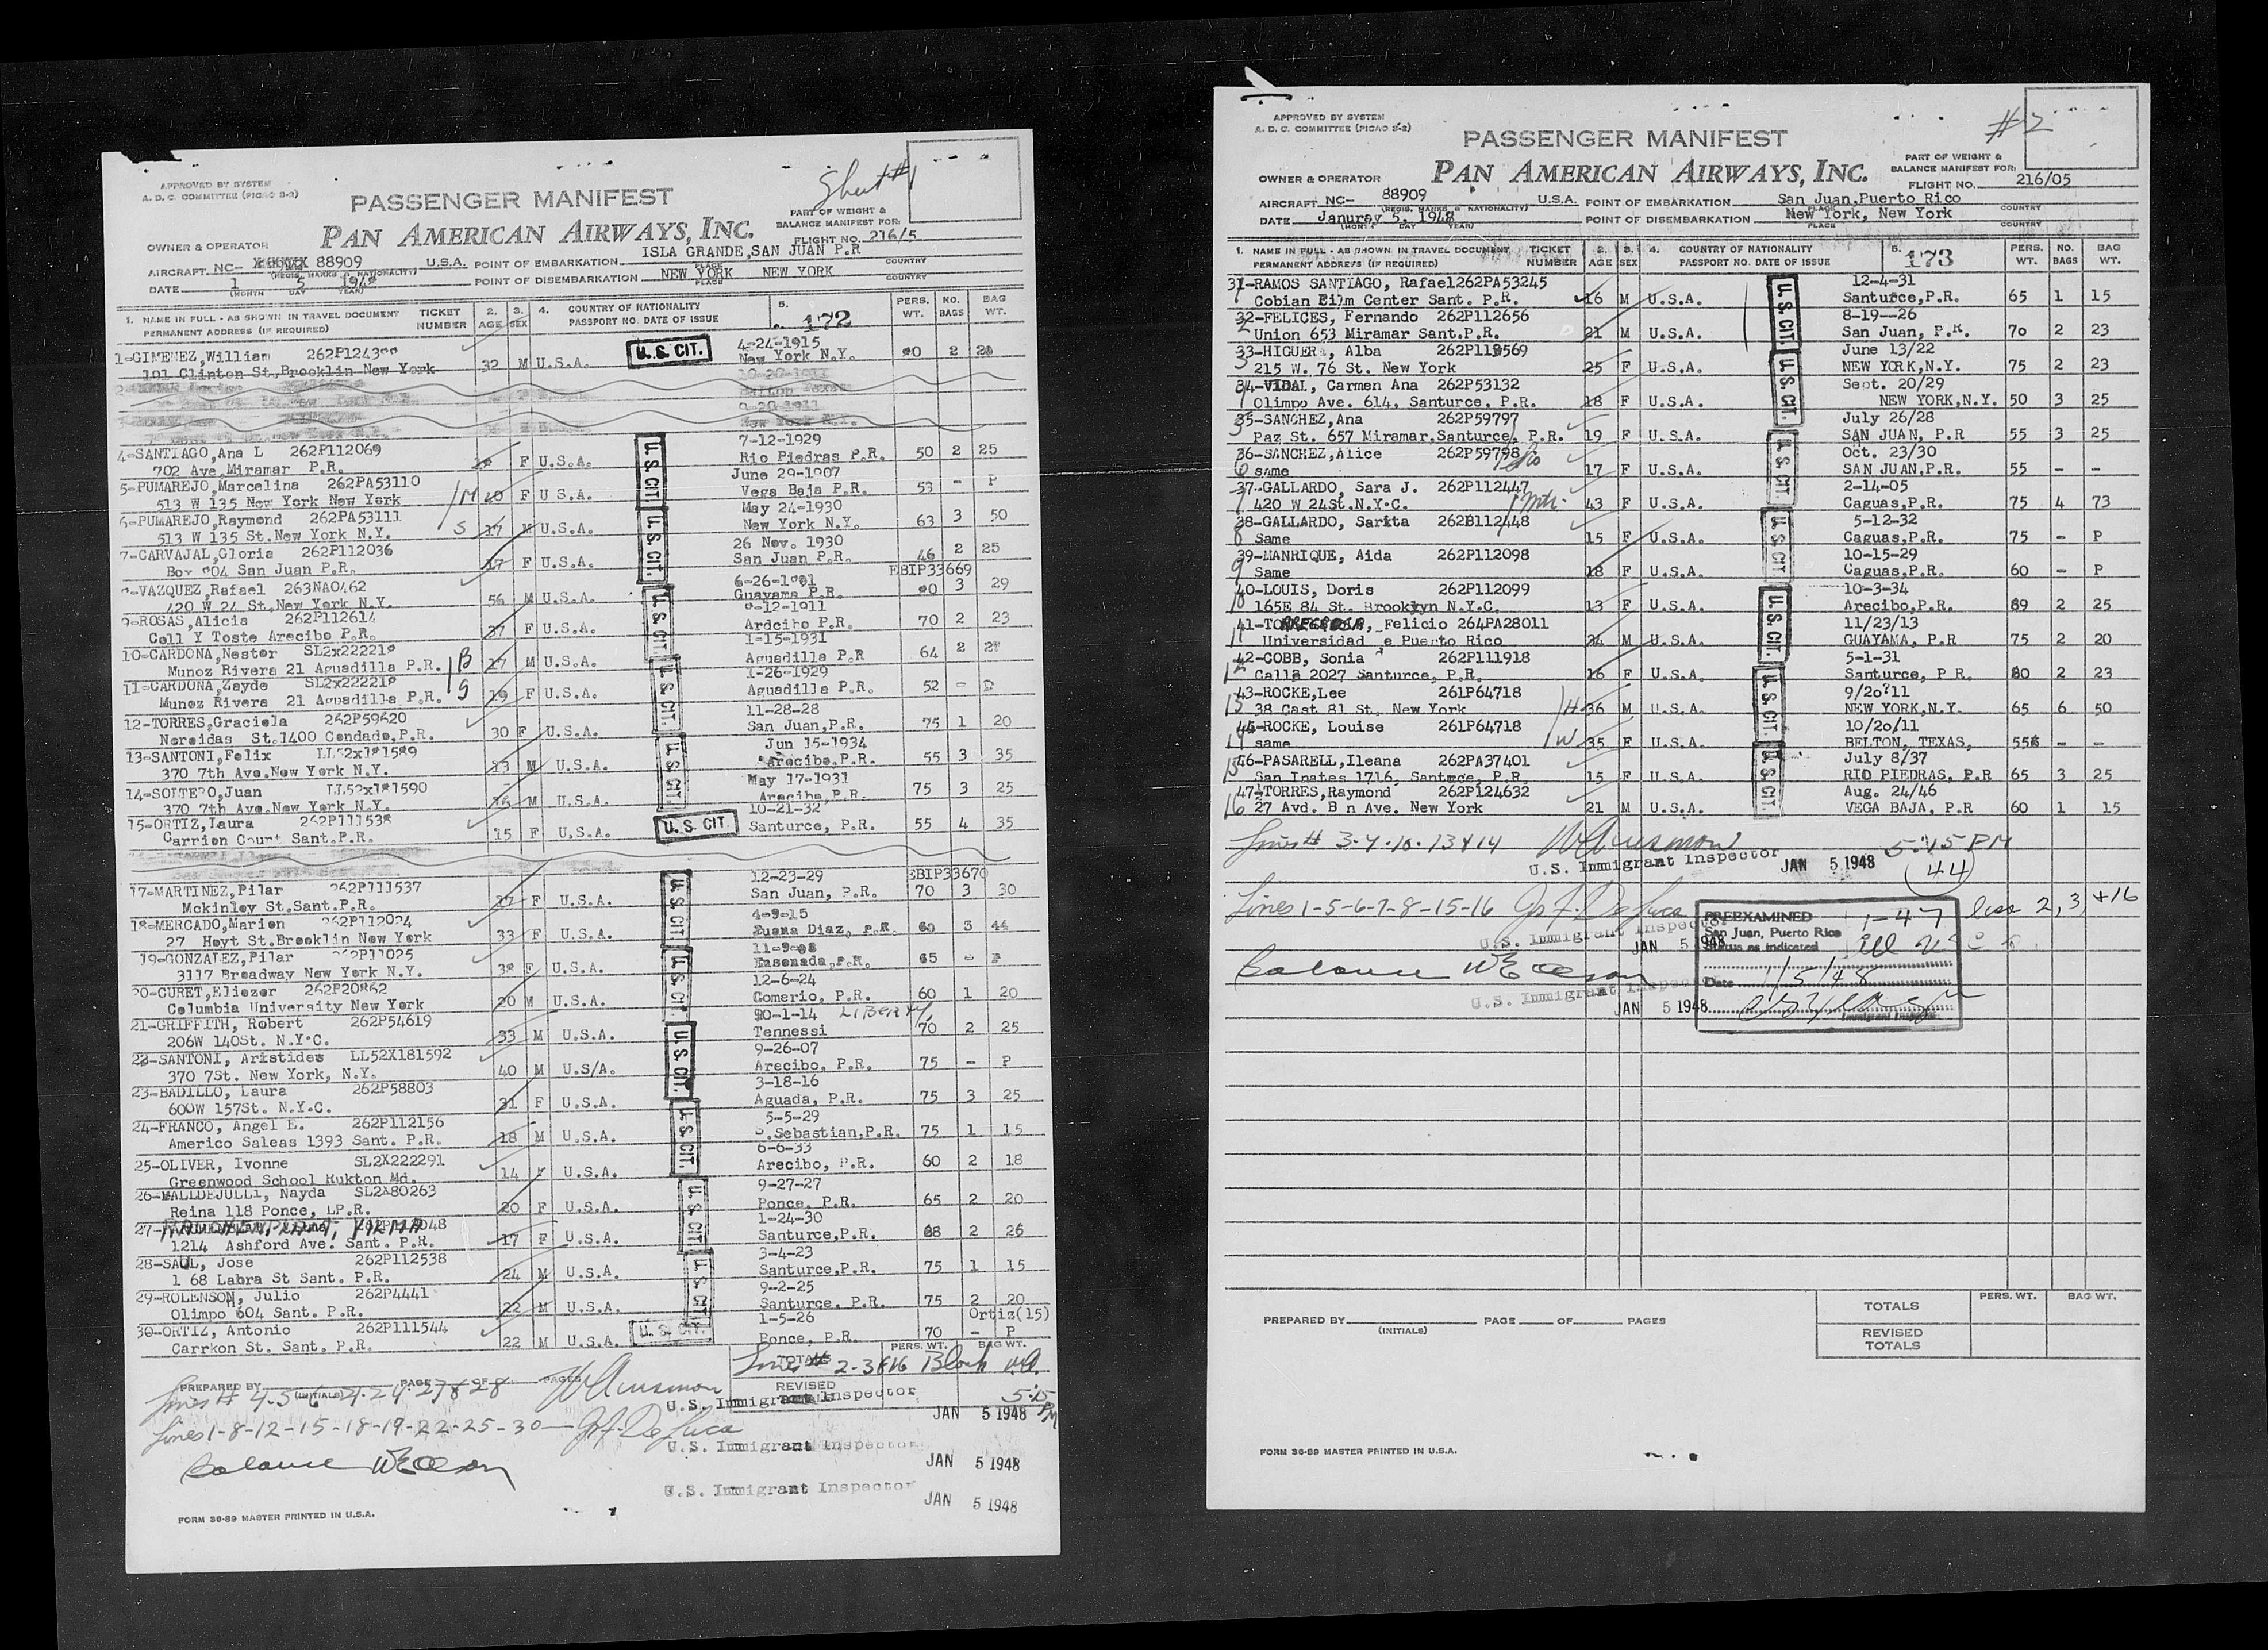 APPROVED BY SYSTEM
A. D. C. COMMITTEE (PICAO S-2)
Sheet #1
PASSENGER MANIFEST
PART OF WEIGHT &
BALANCE MANIFEST FOR:
PAN AMERICAN AIRWAYS, INC.
FLIGHT NO. 216/5
OWNER & OPERATOR
ISLA GRANDE, SAN JUAN P.R
AIRCRAFT NC- 88909 U.S.A. POINT OF EMBARKATION
(REGIS. MARKS & NATIONALITY) PLACE COUNTRY
DATE 1 5 1948 POINT OF DISEMBARKATION NEW YORK NEW YORK
(MONTH DAY YEAR) PLACE COUNTRY
1. NAME IN FULL - AS SHOWN IN TRAVEL DOCUMENT TICKET 2. 3. 4. COUNTRY OF NATIONALITY 5. PERS. NO. BAG
PERMANENT ADDRESS (IF REQUIRED) NUMBER AGE SEX PASSPORT NO. DATE OF ISSUE 172 WT. BAGS WT.
1-GIMENEZ,William 4-24-1915
191 Clinton St,Brooklin New York 32 M U.S.A. U.S. CIT. New York N.Y. 2
4-SANTIAGO,Ana L 262P112069 7-12-1929
702 Ave,Miramar P.R. F U.S.A. U.S. CIT. Rio Piedras P.R. 50 2 25
5-PUMAREJO,Marcelina 262PA53110 June 29-1907
513 W 135 New York New York M F U S.A. Vega Baja P.R. 53 - P
6-PUMAREJO,Raymond 262PA53111 May 24-1930
513 W 135 St.New York N.Y. S 17 M U.S.A. U.S. CIT. New York N.Y. 63 3 50
7-CARVAJAL,Gloria 262P112036 26 Nov. 1930
San Juan P.R. 17 F U.S.A. San Juan P.R. 46 2 25
EBIP33669
VAZQUEZ,Rafael 263NA0462
420 W 24 St.New York N.Y. 56 M U.S.A. U.S. CIT. Guayama P.R. 3 29
9-ROSAS,Alicia 262P112614 -12-1911
Coll Y Toste Arecibo P.R. F U.S.A. P.R. 70 2 23
10-CARDONA,Nestor 1-15-1931
Munoz Rivera 21 Aguadilla P.R. B 17 M U.S.A. U.S. CIT. Aguadilla P.R 64 2
11-CARDONA,Zayde 1-26-1929
Munoz Rivera 21 Aguadilla P.R. S 19 F U.S.A. Aguadilla P.R. 52 -
12-TORRES,Graciela 262P59620 11-28-28
Nereidas St.1400 Condado,P.R. 30 F U.S.A. San Juan,P.R. 75 1 20
13-SANTONI,Felix Jun 15-1934
370 7th Ave.New York N.Y. 13 M U.S.A. U.S. CIT. Arecibo,P.R. 55 3 35
14-SOLTERO,Juan May 17-1931
370 7th Ave.New York N.Y. 16 M U.S.A. Arecibo,P.R. 75 3 25
15-ORTIZ,Laura 10-21-32
Carrion Court Sant.P.R. 15 F U.S.A. U.S. CIT. Santurce, P.R. 55 4 35
12-23-29 EBIP33670
17-MARTINEZ,Pilar 262P111537
Mckinley St.Sant.P.R. F U.S.A. U.S. CIT. San Juan, P.R. 70 3 30
18-MERCADO,Marion 262P112024 4-9-15
27 Hoyt St.Brooklin New York 33 F U.S.A. Diaz, P.R. 60 3 44
19-GONZALEZ,Pilar
3117 Broadway New York N.Y. F U.S.A. U.S. CIT. Ensenada,P.R. 65 -
20-CURET,Eliezer 262P20862 12-6-24
Columbia University New York 20 M U.S.A. Comerio, P.R. 60 1 20
21-GRIFFITH, Robert 262P54619 LIBERTY,
206W 140St. N.Y.C. 33 M U.S.A. U.S. CIT. Tennessi 70 2 25
22-SANTONI, Aristides LL52X181592 9-26-07
370 7St. New York, N.Y. 40 M U.S/A. Arecibo, P.R. 75 - P
23-BADILLO, Laura 262P58803 3-18-16
600W 157St. N.Y.C. 31 F U.S.A. Aguada, P.R. 75 3 25
24-FRANCO, Angel E. 262P112156 5-5-29
Americo Saleas 1393 Sant. P.R. 18 M U.S.A. U.S. CIT. Sebastian,P.R. 75 1 15
25-OLIVER, Ivonne SL2X222291 6-6-33
Greenwood School Rukton Md. 14 U.S.A. Arecibo, P.R. 60 2 18
26-MALLDEJULLI, Nayda SL2X80263 9-27-27
Reina 118 Ponce, LP.R. 20 F U.S.A. U.S. CIT. Ponce, P.R. 65 2 20
27- 1-24-30
1214 Ashford Ave. Sant. P.R. 17 F U.S.A. Santurce,P.R. 88 2 26
28-SAUL, Jose 262P112538 3-4-23
1 68 Labra St Sant. P.R. 24 M U.S.A. U.S. CIT. Santurce,P.R. 75 1 15
29-ROLENSON, Julio 262P4441 9-2-25
Olimpo 604 Sant. P.R. 22 M U.S.A. Santurce. P.R. 75 2 20
30-ORTIZ, Antonio 262P111544 1-5-26 Ortiz(15)
Carrkon St. Sant. P.R. 22 M U.S.A. U.S. CIT. Ponce, P.R. 70 - P
PERS. WT. BAG WT.
TOTALS
Lines # 2-3&16 Blank
PREPARED BY (INITIALS) PAGE OF PAGES
REVISED
U.S. Immigrant Inspector
5:15 PM
JAN 5 1948
Lines 1-8-12-15-18-19-22-25-30 - DeLuca
U.S. Immigrant Inspector
JAN 5 1948
Balance
U.S. Immigrant Inspector
JAN 5 1948
FORM 36-89 MASTER PRINTED IN U.S.A.
APPROVED BY SYSTEM
A. D. C. COMMITTEE (PICAO S-2)
#2
PASSENGER MANIFEST
PART OF WEIGHT &
BALANCE MANIFEST FOR:
OWNER & OPERATOR PAN AMERICAN AIRWAYS, INC.
FLIGHT NO. 216/05
AIRCRAFT NC- 88909 U.S.A. POINT OF EMBARKATION San Juan,Puerto Rico
(REGIS. MARKS & NATIONALITY) PLACE COUNTRY
DATE Januray 5, 1948 POINT OF DISEMBARKATION New York, New York
(MONTH DAY YEAR) PLACE COUNTRY
1. NAME IN FULL - AS SHOWN IN TRAVEL DOCUMENT TICKET 2. 3. 4. COUNTRY OF NATIONALITY 5. PERS. NO. BAG
PERMANENT ADDRESS (IF REQUIRED) NUMBER AGE SEX PASSPORT NO. DATE OF ISSUE 173 WT. BAGS WT.
31-RAMOS SANTIAGO, Rafael262PA53245 12-4-31
1 Cobian Film Center Sant. P.R. 16 M U.S.A. U.S. CIT. Santurce,P.R. 65 1 15
32-FELICES, Fernando 262P112656 8-19--26
2 Union 653 Miramar Sant.P.R. 21 M U.S.A. San Juan, P.R. 70 2 23
33-HIGUERA, Alba 262P119569 June 13/22
3 215 W. 76 St. New York 25 F U.S.A. U.S. CIT. NEW YORK,N.Y. 75 2 23
34-VIDAL, Carmen Ana 262P53132 Sept. 20/29
4 Olimpo Ave. 614, Santurce, P.R. 18 F U.S.A. NEW YORK,N.Y. 50 3 25
35-SANCHEZ,Ana 262P59797 July 26/28
5 Paz St. 657 Miramar,Santurce, P.R. 19 F U.S.A. U.S. CIT. SAN JUAN, P.R 55 3 25
36-SANCHEZ,Alice 262P59798 Oct. 23/30
6 same 17 F U.S.A. SAN JUAN,P.R. 55 - -
37-GALLARDO, Sara J. 262P112447 2-14-05
7 420 W 24St.N.Y.C. 43 F U.S.A. Caguas,P.R. 75 4 73
38-GALLARDO, Sarita 262P112448 5-12-32
8 Same 15 F U.S.A. U.S. CIT. Caguas,P.R. 75 - P
39-MANRIQUE, Aida 262P112098 10-15-29
9 Same 18 F U.S.A. Caguas,P.R. 60 - P
40-LOUIS, Doris 262P112099 10-3-34
10 165E 84 St. Brooklyn N.Y.C. 13 F U.S.A. U.S. CIT. Arecibo,P.R. 89 2 25
41- Felicio 264PA28011 11/23/13
11 Universidad e Puerto Rico 34 M U.S.A. GUAYAMA, P.R 75 2 20
42-COBB, Sonia 262P111918 5-1-31
12 Calla 2027 Santurce, P.R. 16 F U.S.A. U.S. CIT. Santurce, P R. 80 2 23
43-ROCKE,Lee 261P64718 9/20?11
13 38 Cast 81 St. New York H 36 M U.S.A. NEW YORK,N.Y. 65 6 50
45-ROCKE, Louise 261P64718 10/20/11
14 same W 35 F U.S.A. U.S. CIT. BELTON, TEXAS, 55 - -
46-PASARELL,Ileana 262PA37401 July 8/37
15 San Inates 1716, Santurce, P.R. 15 F U.S.A. RIO PIEDRAS, P.R 65 3 25
47-TORRES,Raymond 262P124632 Aug. 24/46
16 27 Avd. B n Ave. New York 21 M U.S.A. VEGA BAJA, P.R 60 1 15
Lines # 3.7.10.13&14
5:15 PM
U.S. Immigrant Inspector JAN 5 1948
44
Lines 1-5-6-7-8-15-16 DeLuca
U.S. Immigrant Inspector
JAN 5 1948
PREEXAMINED 1-47 less 2, 3, +16
San Juan, Puerto Rico
Status as indicated
Date 1/5/48
Immigrant Inspector
Balance
U.S. Immigrant Inspector
JAN 5 1948
PERS. WT. BAG WT.
TOTALS
PREPARED BY (INITIALS) PAGE OF PAGES
REVISED
TOTALS
FORM 36-89 MASTER PRINTED IN U.S.A.